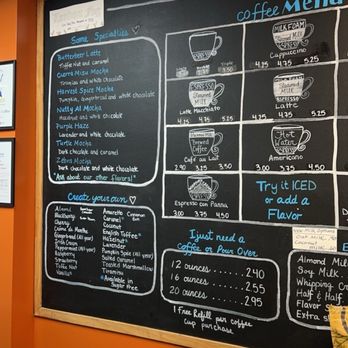 coffee Menu
Some Specialties
Butterbeer Latte
Toffee Nut and caramel
Cuerra Misu Mocha
Tiramisu and white chocolate
Harvest Spice Mocha
Pumpkin, gingerbread and white chocolate
Nutty Al Mocha
Hazelnut and white chocolate
Purple Haze
Lavender and white chocolate
Turtle Mocha
Dark chocolate and caramel
Zebra Mocha
Dark chocolate and white chocolate
*Ask about our other flavors!*
MILK FOAM
Steamed Milk
ESPRESSO
Cappuccino
4.25 4.75 5.25
Steamed MILK
Latte Macchiato
4.25 4.75 5.25
ESPRESSO
Latte
4.25 4.75 5.25
Brewed
Café au Lait
2.90 3.25 3.50
Hot Water
Americano
3.00 3.50 4.00
Espresso con Panna
3.00 3.75 4.75
Try it ICED
or add a
Flavor
Create your own
Almond
Blackberry
Cherry
Crème de Menthe
Gingerbread (All year)
Irish Cream
Peppermint (All year)
Raspberry
Strawberry
Toffee Nut
Vanilla
Amaretto
Caramel
Coconut
English Toffee*
Hazelnut*
Lavender
Pumpkin Spice (All year)
Salted Caramel
Toasted Marshmallow
Tiramisu
*Available in
Sugar free
Cinnamon Bun
I just need a
Coffee or Pour Over
12 ounces 2.40
16 ounces 2.55
20 ounces 2.95
1 Free Refill per coffee
cup purchase
Milk Options
Oat Milk
Coconut
Almond
Soy Milk
Whipping
Half & Half
Flavor
Extra